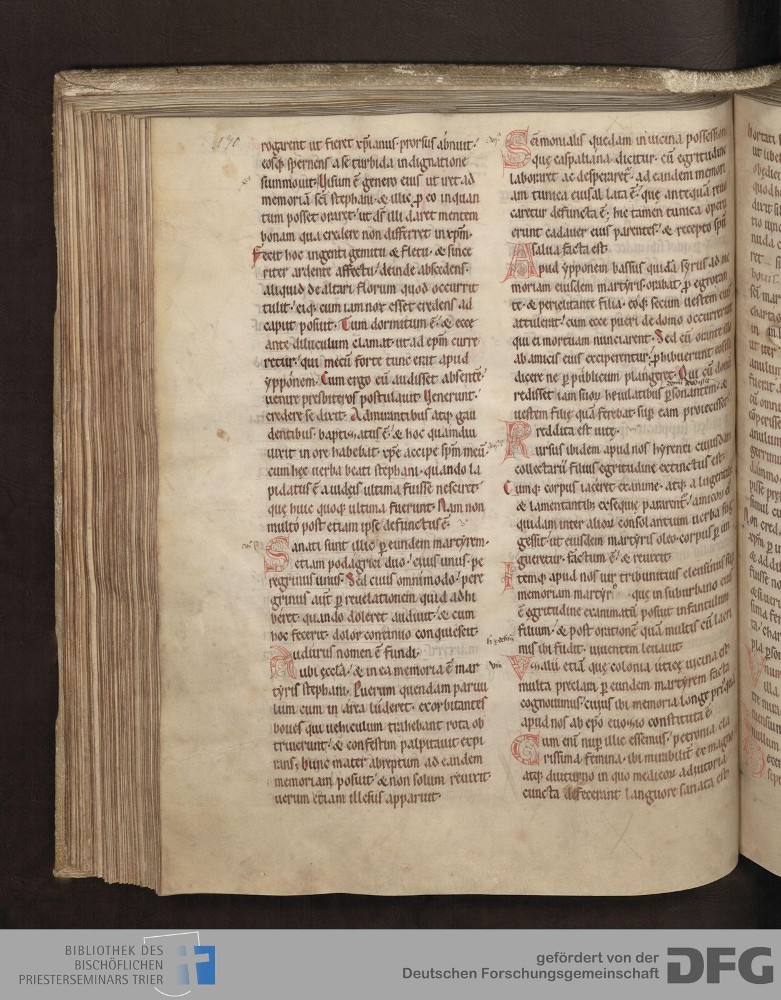 190
rogarent ut fieret xp̄ianus. prorsus abnuit.
eosq; spernens a se turbida indignatione
summouit. Uisum ē genero eius ut iret ad
memoriā sc̄i stephani. & illic p̱ eo in quan
tum posset oraret. ut ds̄ illi daret mentem
bonam qua credere non differret in xp̄m.
Fecit hoc ingenti gemitu & fletu. & since
riter ardente affectu. deinde abscedens.
aliquid de altari florum quod occurrit
tulit. eiq; cum iam nox esset credens ad
caput posuit. Tum dormitum ē. & ecce
ante diluculum clamat. ut ad ep̄m curre
retur. qui mecū forte tunc erat apud
ypponem. Cum ergo eū audisset absentē.
uenire presbiteros postulauit. Uenerunt.
credere se dixit. Admirantibus atq; gau
dentibus. baptizatus ē. & hoc quamdiu
uixit in ore habebat. xp̄e accipe sp̄m meū.
cum hec uerba beati stephani. quando la
pidatus ē a iudeis ultima fuisse nesciret.
que huic quoq; ultima fuerunt. Nam non
multo post etiam ipse defunctus ē.
Sanati sunt illic p̱ eundem martyrem.
etiam podagrici duo. ciuis unus. pe
regrinus unus. Sed ciuis omnimodo. pere
grinus aut̄ p̱ reuelationem quid adhi
beret. quando doleret audiuit. & cum
hoc fecerit. dolor continuo conquiescit.
Audurus nomen ē fundi.
ubi eccl̄a. & in ea memoria ē mar
tyris stephani. Puerum quendam paruu
lum cum in area luderet. exorbitantes
boues qui uehiculum trahebant rota ob
triuerunt. & confestim palpitauit expi
rans. hunc mater abreptum ad eandem
memoriam posuit. & non solum reuixit.
uerum etiam illesus apparuit.
Sc̄imonialis quedam in uicina possession
que caspaliana dicitur. cū egritudine
laboraret ac desperaret. ad eandem memori
am tunica eius allata ē. que antequā reuo
caretur defuncta ē. hic tamen tunica operu
erunt cadauer eius parentes. & recepto sp̄u
salua facta est.
Apud ypponem bassus quidā syrus ad me
moriam eiusdem martyris orabat p̱ egrotan
te. & periclitante filia. eoq; secum uestem eius
attulerat. cum ecce pueri de domo occurrerunt
qui ei mortuam nunciarent. Sed cū orante illo
ab amicis eius exciperentur. p̱hibuerunt eos illi
dicere ne p̱ publicum plangeret. Qui cū domū
redisset iam suorum heiulatibus p̱sonantem. &
uestem filię quā ferebat sup̱ eam proiecisset
reddita est uite.
Rursus ibidem apud nos hyrenei cuiusdam
collectarii filius egritudine extinctus est.
Cumq; corpus iaceret exanime. atq; a lugentibus
& lamentantib; exsequię pararent̄. amicorū ei
quidam inter alios consolantium uerba sug
gessit ut eiusdem martyris oleo corpus p̱un
gueretur. factum ē. & reuixit.
Itemq; apud nos uir tribunitius eleusinus sup̱
memoriam martyrū que in suburbano eius
ē egritudine exanimatū posuit infantulum
filium. & post orationē quā multis cū lacri
mis ibi fudit. uiuentem leuauit.
Uzali etiā que colonia utice uicina est
multa preclara p̱ eundem martyrem facta
cognouimus. cuius ibi memoria longe priusquā
apud nos ab ep̄o euodio constituta ē.
Cum enī nup̱ illic essemus. petronia cla
rissima femina. ibi mirabilit̄ ex magno
atq; diuturno in quo medicorū adiutoria
cuncta defecerant languore sanata est.
BIBLIOTHEK DES
BISCHÖFLICHEN
PRIESTERSEMINARS TRIER
gefördert von der
Deutschen Forschungsgemeinschaft
DFG